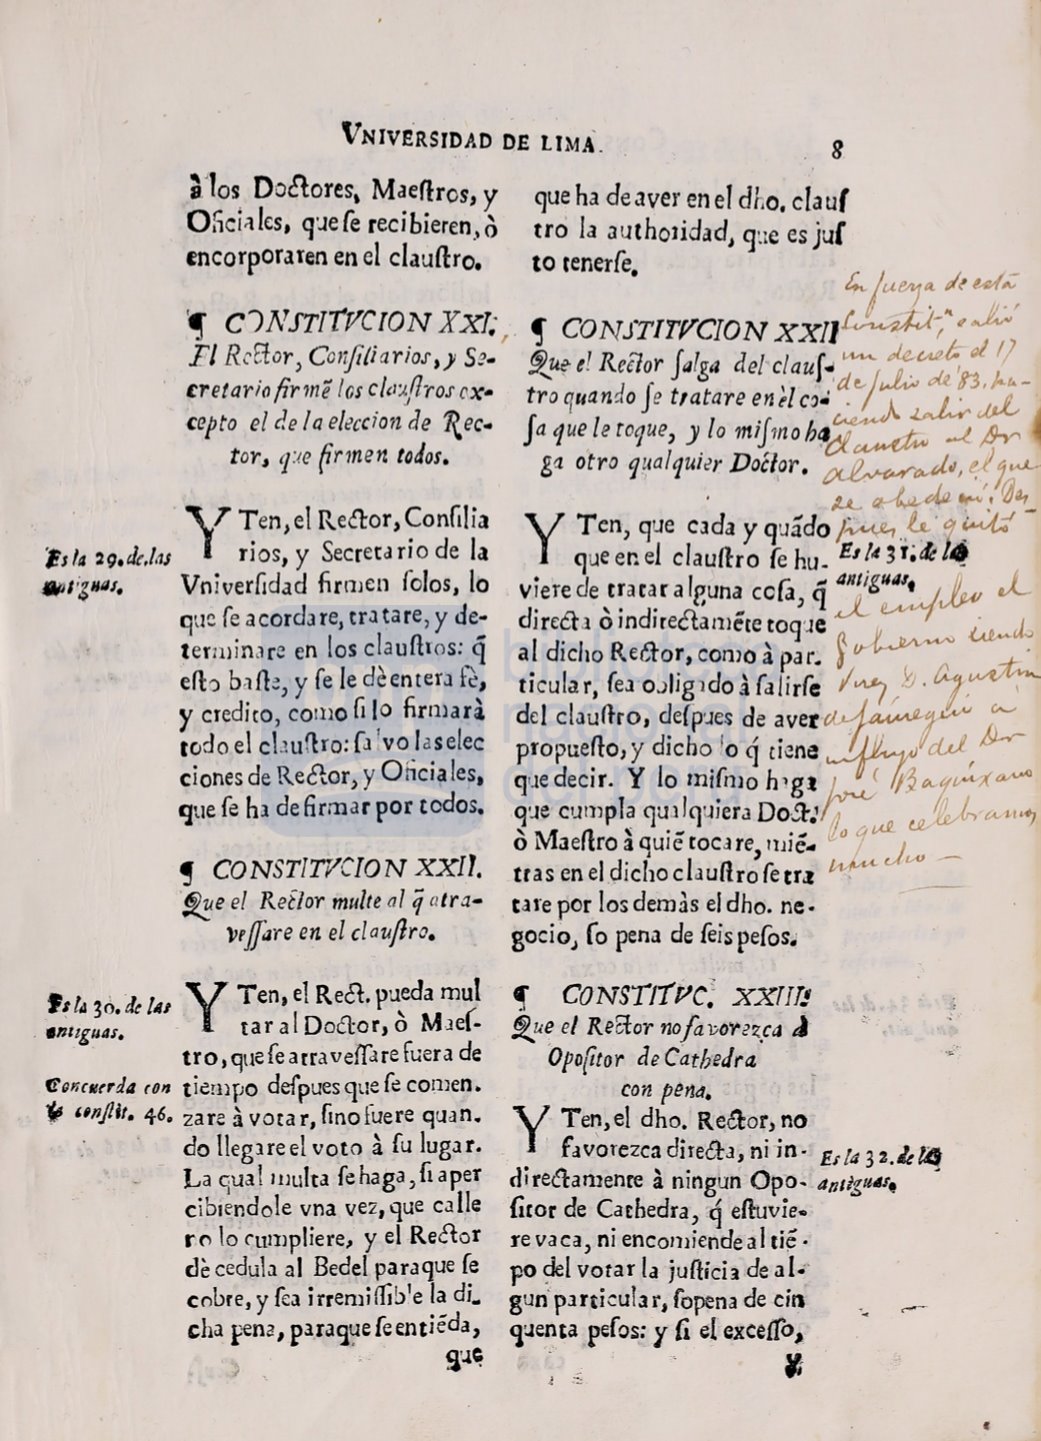 VNIVERSIDAD DE LIMA.
8
à los Doctores, Maeſtros, y
Oficiales, que ſe recibieren, ò
encorporaren en el clauſtro.
¶ CONSTITVCION XXI.
El Rector, Conſiliarios, y Se-
cretario firmẽ los clauſtros ex-
cepto el de la eleccion de Rec-
tor, que firmen todos.
Es la 29. de las
antiguas.
YTen, el Rector, Conſilia
rios, y Secretario de la
Vniverſidad firmen ſolos, lo
que ſe acordare, tratare, y de-
terminare en los clauſtros: q̃
eſto baſte, y ſe le dè entera fè,
y credito, como ſi lo firmarà
todo el clauſtro: ſalvo las elec
ciones de Rector, y Oficiales,
que ſe ha de firmar por todos.
¶ CONSTITVCION XXII.
Que el Rector multe al q̃ atra-
veſſare en el clauſtro.
Es la 30. de las
antiguas.
Concuerda con
la conſtit. 46.
YTen, el Rect. pueda mul
tar al Doctor, ò Maeſ-
tro, que ſe atraveſſare fuera de
tiempo deſpues que ſe comen.
zare à votar, ſino fuere quan.
do llegare el voto à ſu lugar.
La qual multa ſe haga, ſi aper
cibiendole vna vez, que calle
no lo cumpliere, y el Rector
dè cedula al Bedel paraque ſe
cobre, y ſea irremiſſible la di-
cha pena, paraque ſe entiẽda,
que
que ha de aver en el dho. clauſ
tro la authoridad, que es juſ
to tenerſe.
¶ CONSTITVCION XXII
Que el Rector ſalga del clauſ-
tro quando ſe tratare en èl co-
ſa que le toque, y lo miſmo ha
ga otro qualquier Doctor.
YTen, que cada y quãdo
que en el clauſtro ſe hu-
viere de tratar alguna coſa, q̃
directa ò indirectamẽte toque
al dicho Rector, como à par.
ticular, ſea obligado à ſalirſe
del clauſtro, deſpues de aver
propueſto, y dicho lo q̃ tiene
que decir. Y lo miſmo haga
que cumpla qualquiera Doct.
ò Maeſtro à quiẽ tocare, miẽ-
tras en el dicho clauſtro ſe tra
tare por los demàs el dho. ne-
gocio, ſo pena de ſeis peſos.
¶ CONSTITVC. XXIII.
Que el Rector no favorezca à
Opoſitor de Cathedra
con pena.
YTen, el dho. Rector, no
favorezca directa, ni in-
directamente à ningun Opo-
ſitor de Cathedra, q̃ eſtuvie-
re vaca, ni encomiende al tiẽ-
po del votar la juſticia de al-
gun particular, ſopena de cin
quenta peſos: y ſi el exceſſo,
y
En fuerza de está
Constit.n salió
un decreto el 17
de Julio de 83. ha-
ciendo salir del
Claustro al Dr
Alvarado, el que
se obedeció: Des
pues le quitó
Es la 31. de las
antiguas.
el empleo el
Gobierno siendo
Virey D. Agustin
de Jauregui a
influjo del Dr
José Baquixano
lo que celebramos
mucho —
Es la 32. de las
antiguas.
biblioteca
nacional